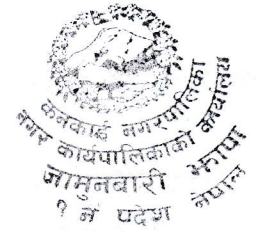 कनकाई नगरपालिका
नगर कार्यपालिकाको कार्यालय
जामुनवारी झापा
१ नं प्रदेश नेपाल